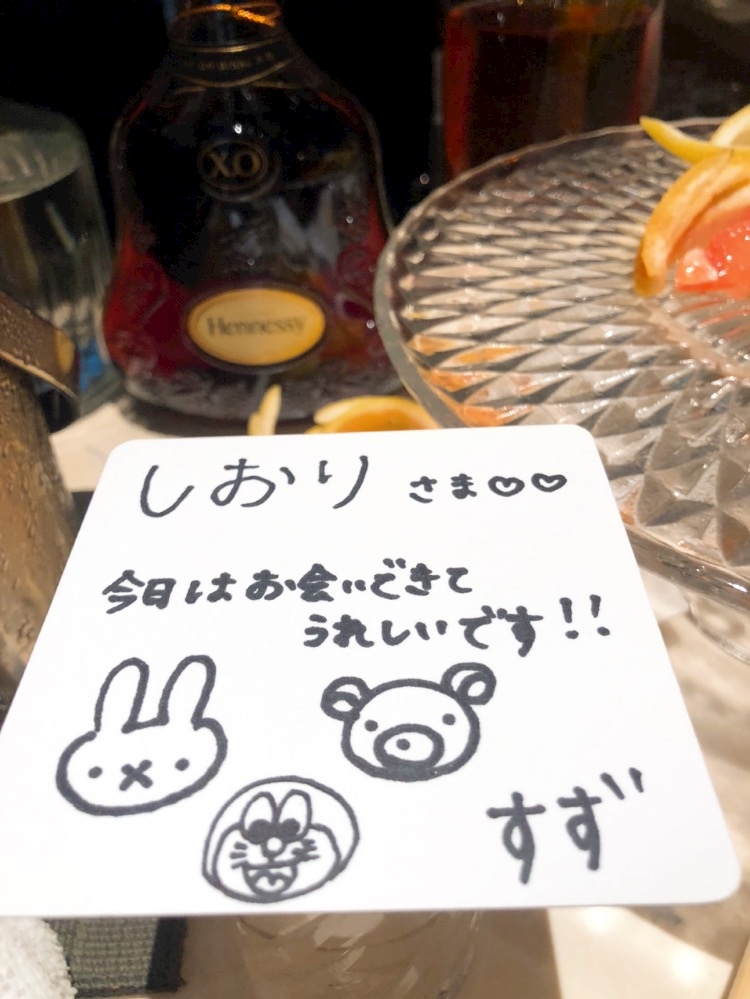 XO
Hennessy
しおり さま♡♡
今日はお会いできて
うれしいです!!
すず